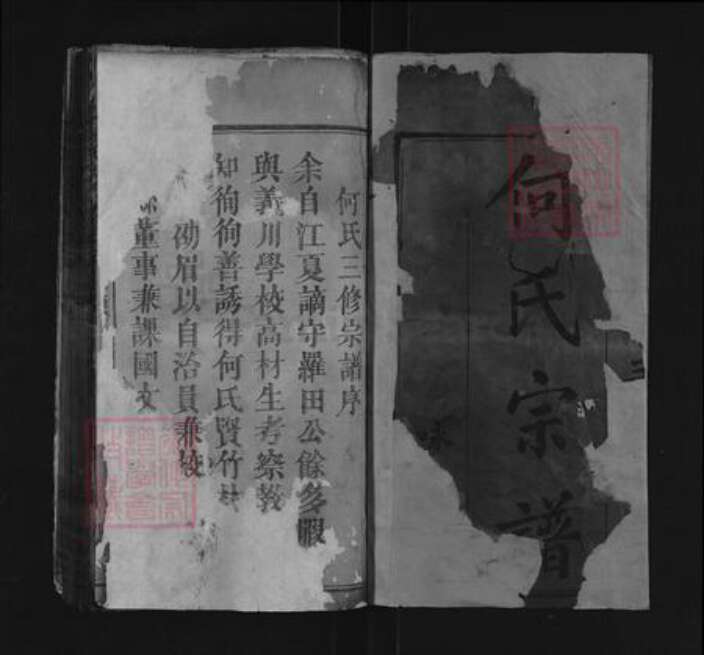 何氏宗譜
何氏三修宗譜序
余自江夏謫守羅田公餘多暇
與義川學校高材生考察教
知徇徇善誘得何氏賢竹林
劭眉以自治員兼校
董事兼課國文